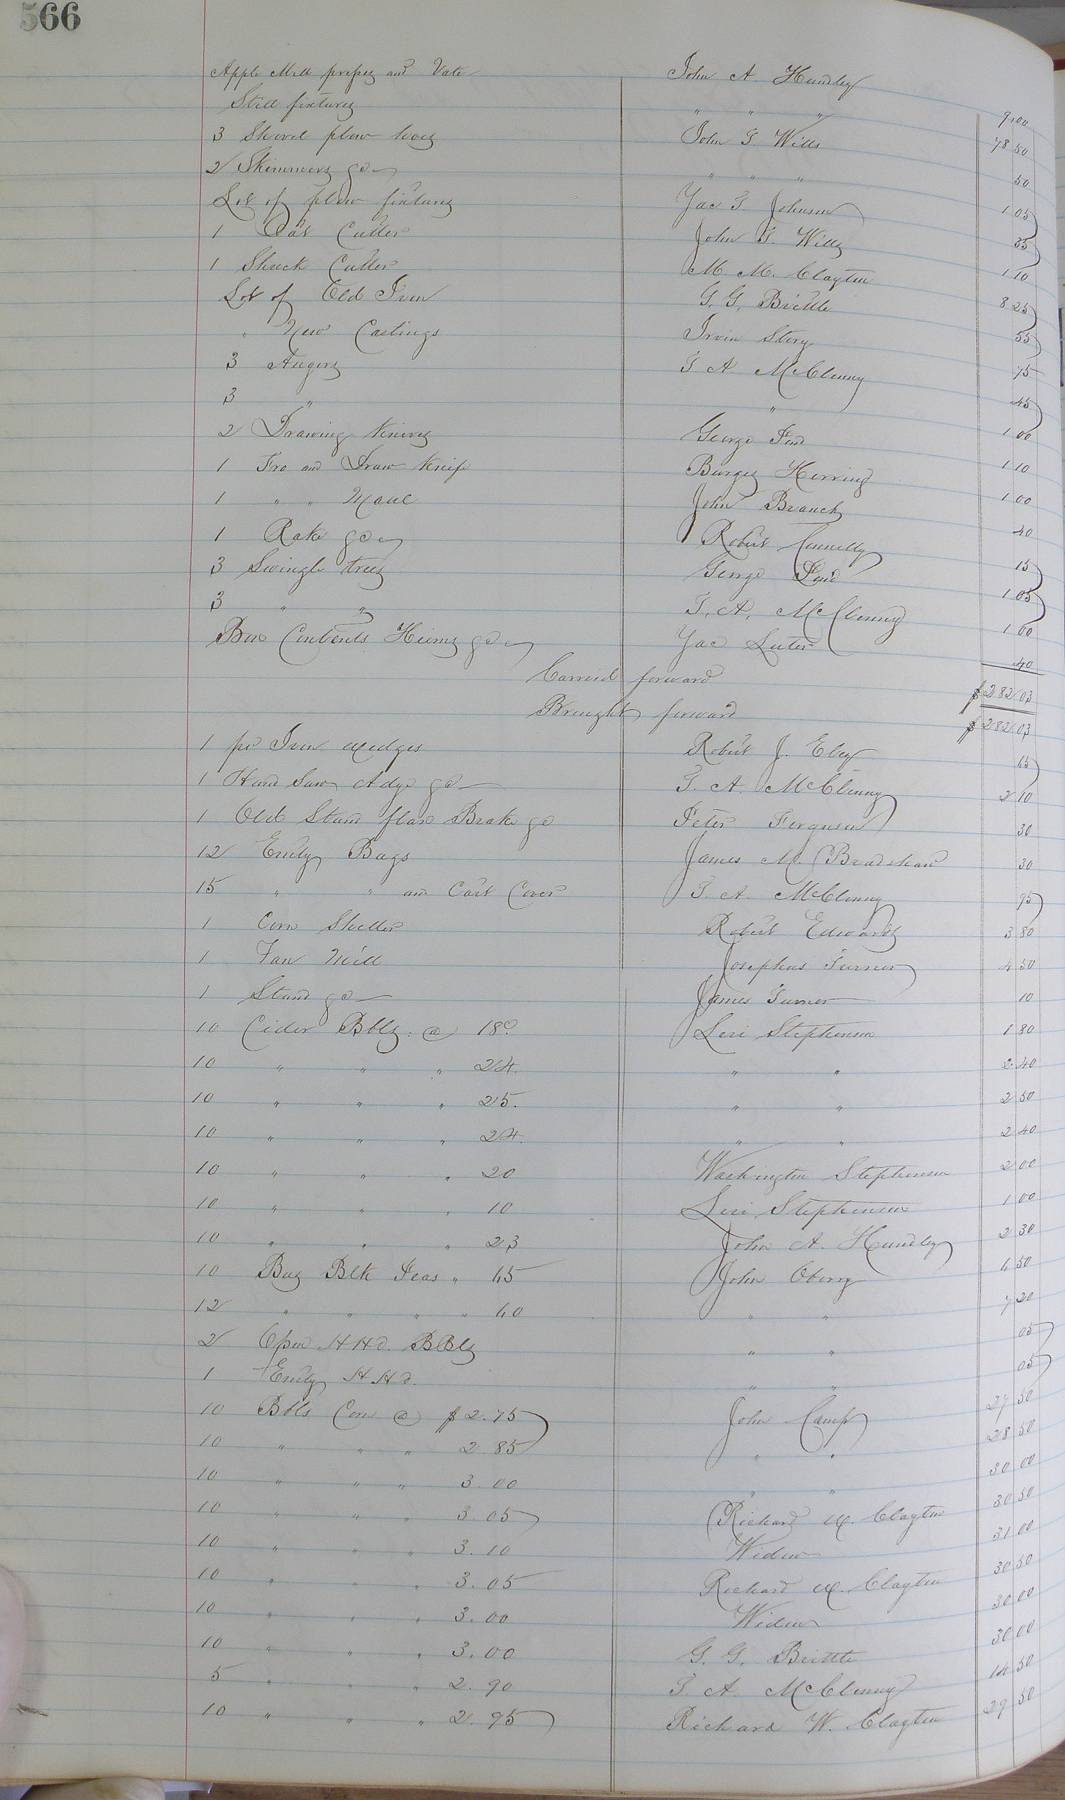 566
Apple Mill press and Vats John A Hundley 9.00
Still fixtures " " " 78 50
3 Shovel plow hoes John T Wills 50
2 Skimmers &c " " " 1 05
Lot of plow fixtures Jac T Johnson 35
1 Oat Cutter John T. Wills 1 10
1 Shuck Cutter M M. Clayton 8 25
Lot of Old Iron G. G. Brittle 55
" New Castings Irvin Story 75
3 Augers T A McClenny 45
3 " " 1 00
2 Drawing Knives George Ford 1 10
1 Fro and Draw Knife Burges Herring 1 00
1 " " Maul John Branch 40
1 Rake &c Robert Connelly 15
3 Swingle trees George Ford 1 05
3 " " T. A. McClenny 1 00
Box Contents Heims &c Jac Luter 40
Carried forward $282 03
Brought forward $282 03
1 pr Iron wedges Robert J. Eley 65
1 Hand Saw Adze &c T. A. McClenny 2 10
1 Old Stand flax Brake &c Peter Ferguson 30
12 Empty Bags James M. Bradshaw 30
15 " " and Cart Cover T. A. McClenny 95
1 Corn Sheller Robert Edwards 3 80
1 Fan Mill Josephus Turner 4 50
1 Stand &c James Turner 10
10 Cider Bbls. @ 18c Levi Stephenson 1 80
10 " " " 24. " " 2 40
10 " " " 25. " " 2 50
10 " " " 24. " " 2 40
10 " " " 20 Washington Stephenson 2 00
10 " " " 10 Levi Stephenson 1 00
10 " " " 23 John A. Hundley 2 30
10 Bug Blk Peas " 65 John Oberry 6 50
12 " " " " 60 " " 7 20
2 Open HHd. BBls " " 05
1 Empty HHd. " " 05
10 Bbls Corn @ $2.75 John Camp 27 50
10 " " " 2 85 " " 28 50
10 " " " 3.00 " " 30 00
10 " " " 3.05 Richard W. Clayton 30 50
10 " " " 3.10 Widow 31 00
10 " " " 3.05 Richard W. Clayton 30 50
10 " " " 3.00 Widow 30 00
10 " " " 3.00 G. G. Brittle 30 00
5 " " " 2.90 T A McClenny 14 50
10 " " " 2.95 Richard W. Clayton 29 50